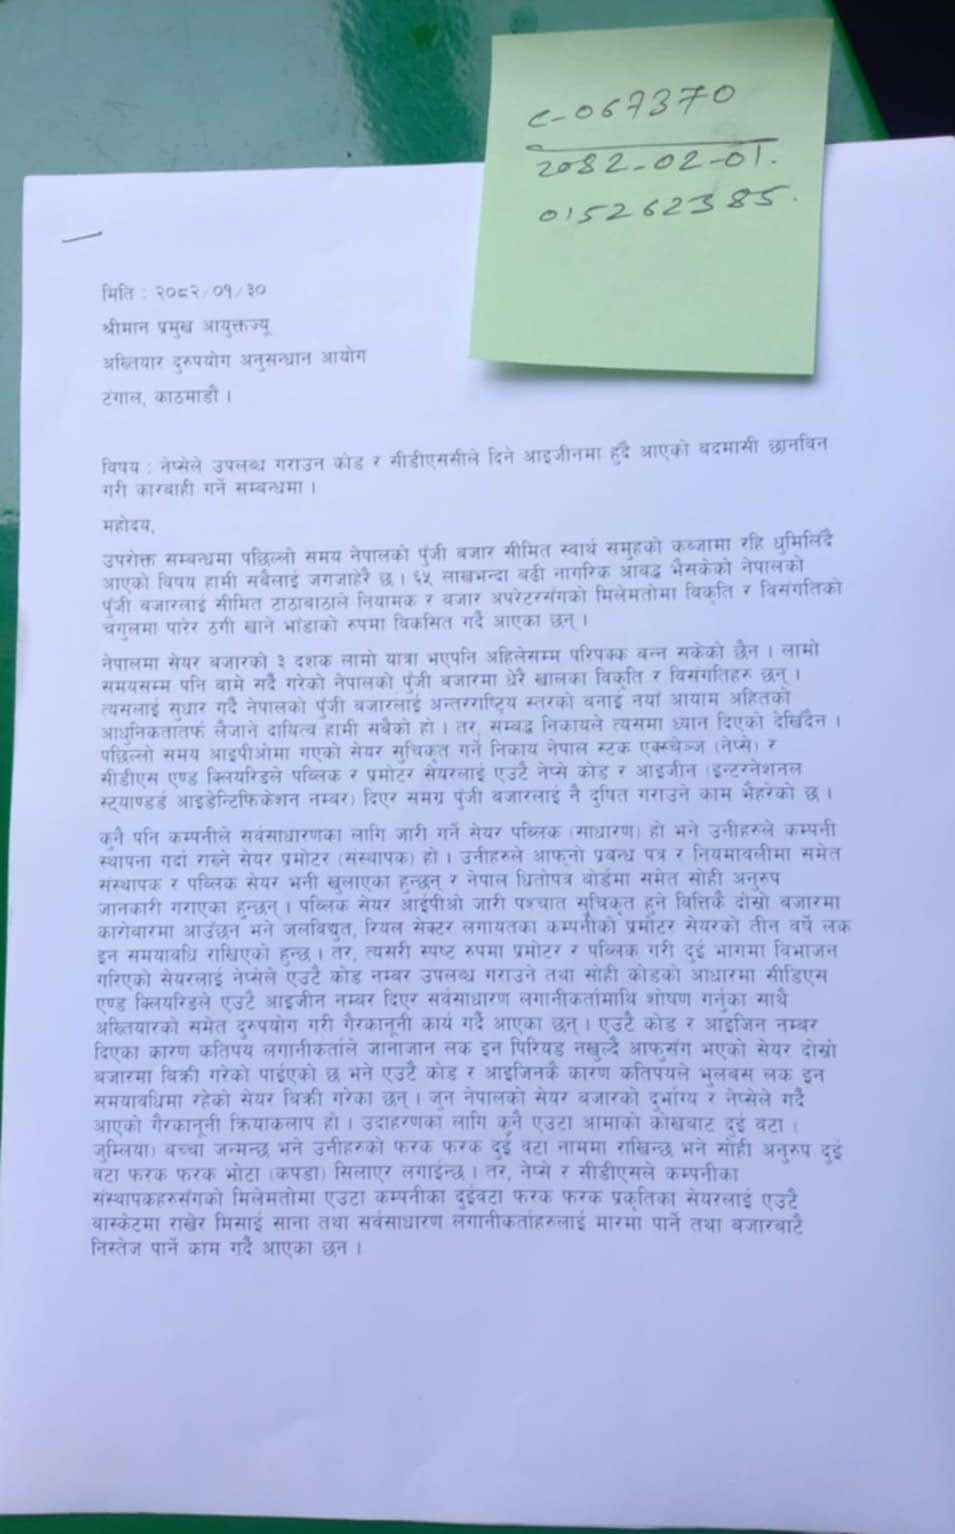 c-067370
2082-02-01.
015262385.
मिति : २०८२/०१/३०
श्रीमान प्रमुख आयुक्तज्यू
अख्तियार दुरुपयोग अनुसन्धान आयोग
टंगाल, काठमाडौं ।
विषय : नेप्सेले उपलब्ध गराउन कोड र सीडीएससीले दिने आइजीनमा हुँदै आएको बदमासी छानविन
गरी कारबाही गर्ने सम्बन्धमा ।
महोदय,
उपरोक्त सम्बन्धमा पछिल्लो समय नेपालको पुँजी बजार सीमित स्वार्थ समुहको कब्जामा रहि धुमिलिँदै
आएको विषय हामी सबैलाई जगजाहेरै छ । ६५ लाखभन्दा बढी नागरिक आबद्ध भैसकेको नेपालको
पुँजी बजारलाई सीमित टाठाबाठाले नियामक र बजार अपरेटरसँगको मिलेमतोमा विकृति र विसंगतिको
चंगुलमा पारेर ठगी खाने भाँडाको रुपमा विकसित गर्दै आएका छन् ।
नेपालमा सेयर बजारको ३ दशक लामो यात्रा भएपनि अहिलेसम्म परिपक्क बन्न सकेको छैन । लामो
समयसम्म पनि बामे सर्दै गरेको नेपालको पुँजी बजारमा धेरै खालका विकृति र विसंगतिहरु छन् ।
त्यसलाई सुधार गर्दै नेपालको पुँजी बजारलाई अन्तरराष्ट्रिय स्तरको बनाई नयाँ आयाम अहितको
आधुनिकतातर्फ लैजाने दायित्व हामी सबैको हो । तर, सम्बद्ध निकायले त्यसमा ध्यान दिएको देखिँदैन ।
पछिल्लो समय आइपीओमा गएको सेयर सुचिकृत गर्ने निकाय नेपाल स्टक एक्स्चेञ्ज (नेप्से) र
सीडीएस एण्ड क्लियरिङले पब्लिक र प्रमोटर सेयरलाई एउटै नेप्से कोड र आइजीन (इन्टरनेशनल
स्ट्याण्डर्ड आइडेन्टिफिकेशन नम्बर) दिएर समग्र पुँजी बजारलाई नै दुषित गराउने काम भैहरेको छ ।
कुनै पनि कम्पनीले सर्वसाधारणका लागि जारी गर्ने सेयर पब्लिक (साधारण) हो भने उनीहरुले कम्पनी
स्थापना गर्दा राख्ने सेयर प्रमोटर (संस्थापक) हो । उनीहरुले आफ्नो प्रबन्ध पत्र र नियमावलीमा समेत
संस्थापक र पब्लिक सेयर भनी खुलाएका हुन्छन् र नेपाल धितोपत्र बोर्डमा समेत सोही अनुरुप
जानकारी गराएका हुन्छन् । पब्लिक सेयर आईपीओ जारी पश्चात सुचिकृत हुने वित्तिकै दोस्रो बजारमा
कारोबारमा आउँछन भने जलविद्युत, रियल सेक्टर लगायतका कम्पनीको प्रमोटर सेयरको तीन वर्षे लक
इन समयावधि राखिएको हुन्छ । तर, त्यसरी स्पष्ट रुपमा प्रमोटर र पब्लिक गरी दुई भागमा विभाजन
गरिएको सेयरलाई नेप्सेले एउटै कोड नम्बर उपलब्ध गराउने तथा सोही कोडको आधारमा सीडिएस
एण्ड क्लियरिङले एउटै आइजीन नम्बर दिएर सर्वसाधारण लगानीकर्तामाथि शोषण गर्नुका साथै
अख्तियारको समेत दुरुपयोग गरी गैरकानूनी कार्य गर्दै आएका छन् । एउटै कोड र आइजिन नम्बर
दिएका कारण कतिपय लगानीकर्ताले जानाजान लक इन पिरियड नखुल्दै आफुसँग भएको सेयर दोस्रो
बजारमा विक्री गरेको पाईएको छ भने एउटै कोड र आइजिनकै कारण कतिपयले भुलबस लक इन
समयावधिमा रहेको सेयर बिक्री गरेका छन् । जुन नेपालको सेयर बजारको दुर्भाग्य र नेप्सेले गर्दै
आएको गैरकानूनी क्रियाकलाप हो । उदाहरणका लागि कुनै एउटा आमाको कोखबाट दुई वटा (
जुम्लिया) बच्चा जन्मन्छ भने उनीहरुको फरक फरक दुई वटा नाममा राखिन्छ भने सोही अनुरुप दुई
वटा फरक फरक भोटा (कपडा) सिलाएर लगाईन्छ । तर, नेप्से र सीडीएसले कम्पनीका
संस्थापकहरुसँगको मिलेमतोमा एउटा कम्पनीका दुईवटा फरक फरक प्रकृतिका सेयरलाई एउटै
बास्केटमा राखेर मिसाई साना तथा सर्वसाधारण लगानीकर्ताहरुलाई मारमा पार्ने तथा बजारबाटै
निस्तेज पार्ने काम गर्दै आएका छन ।